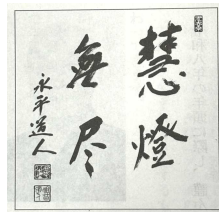 慧燈
無尽
永平道人